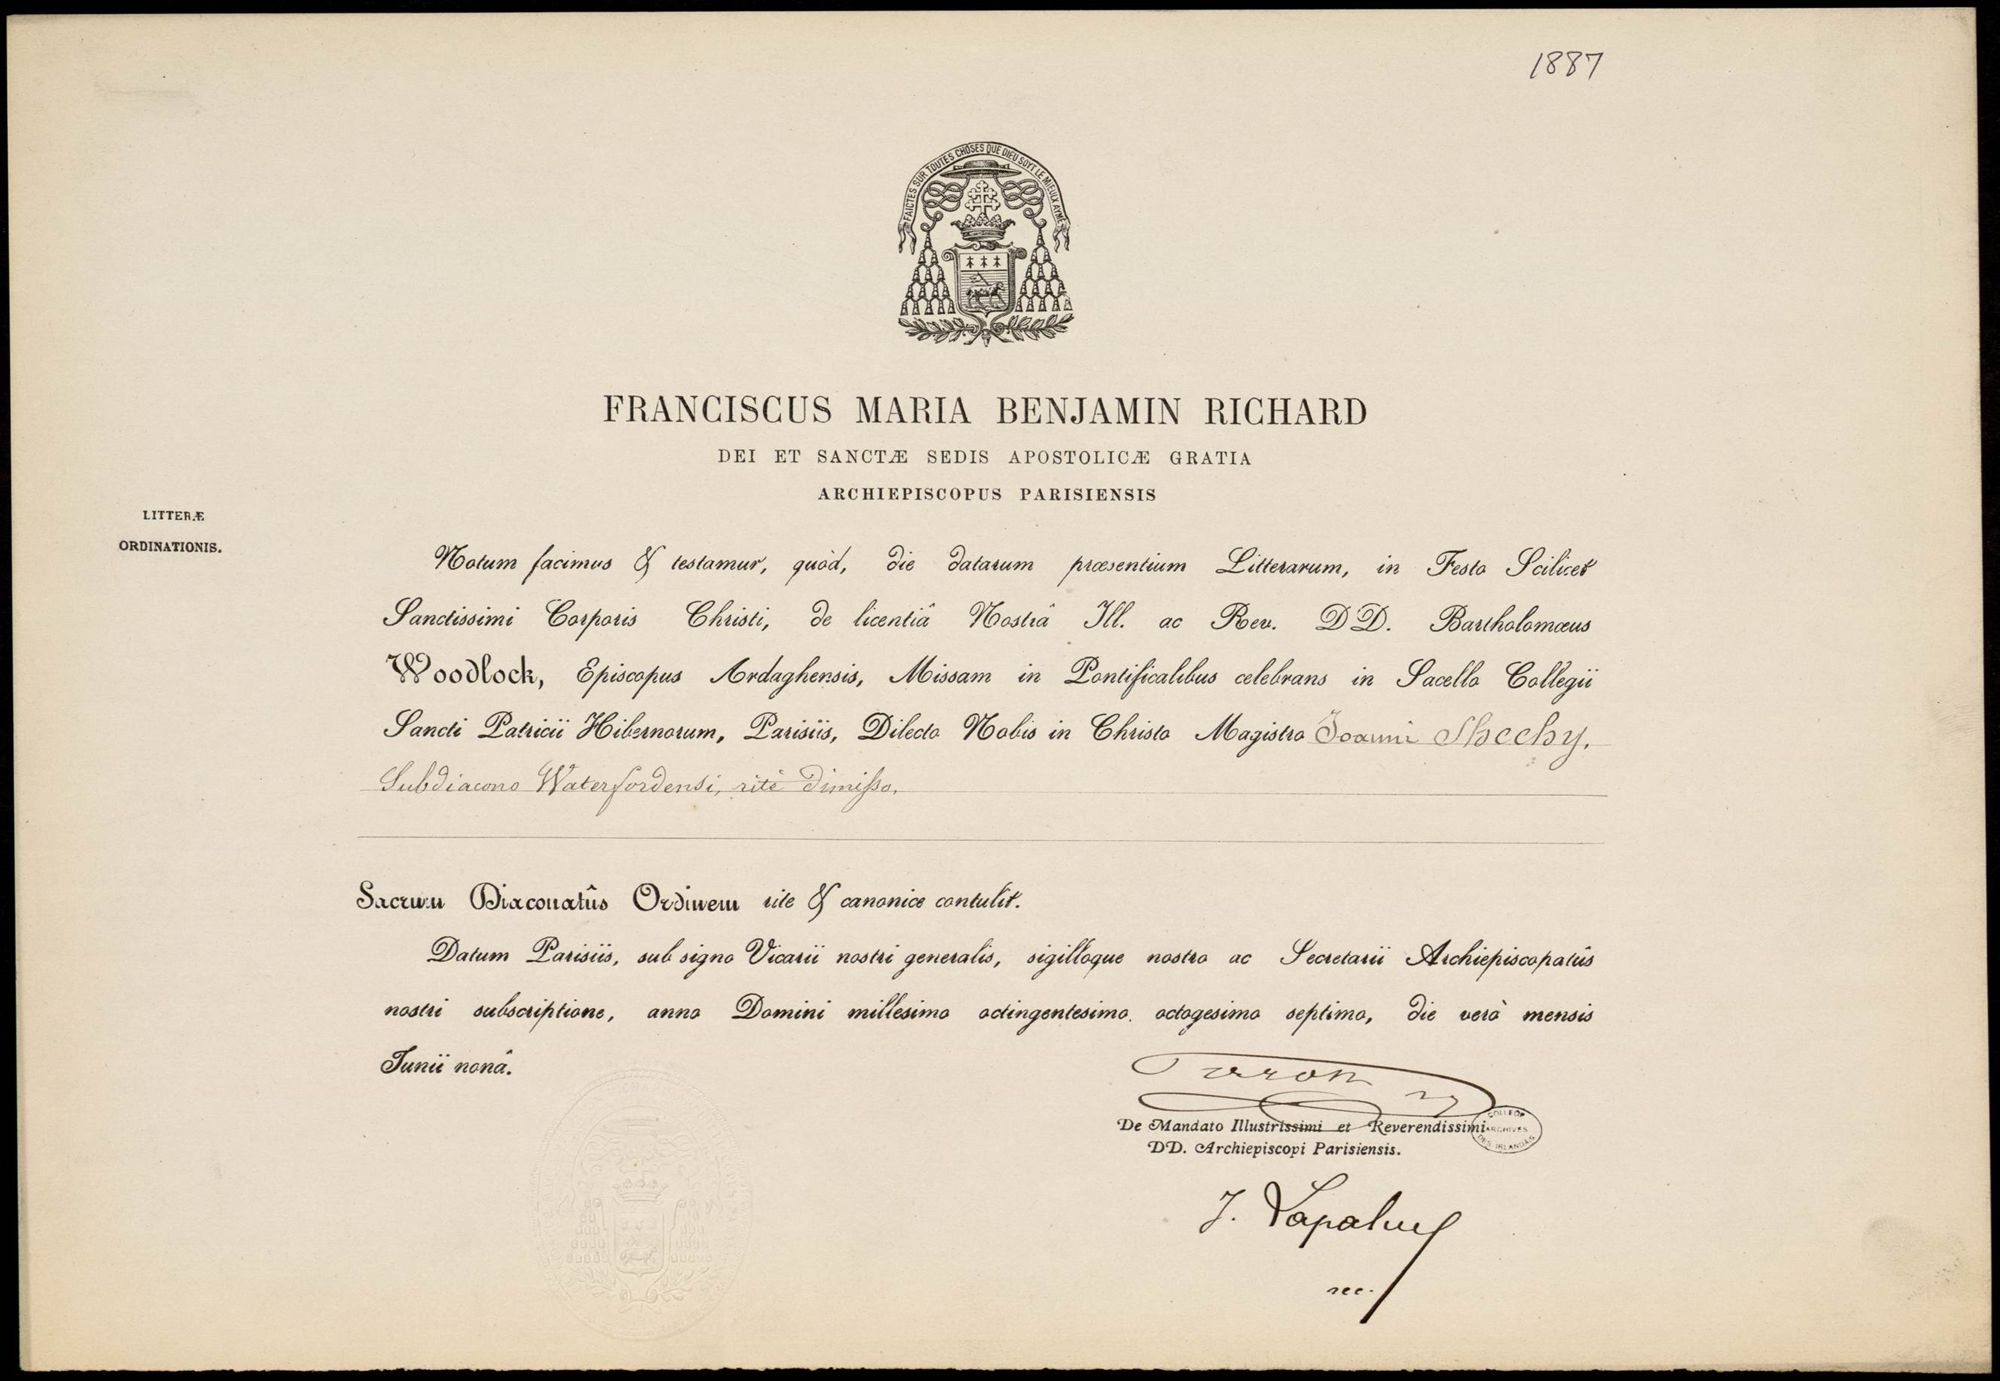 1887
FAICTES SUR TOUTES CHOSES QUE DIEU SOYT LE MIEUX AYMÉ
FRANCISCUS MARIA BENJAMIN RICHARD
DEI ET SANCTÆ SEDIS APOSTOLICÆ GRATIA
ARCHIEPISCOPUS PARISIENSIS
LITTERÆ
ORDINATIONIS.
Notum facimus & testamur, quòd, die datarum præsentium Litterarum, in Festo Scilicet
Sanctissimi Corporis Christi, de licentiâ Nostrâ Ill. ac Rev. DD. Bartholomæus
Woodlock, Episcopus Ardaghensis, Missam in Pontificalibus celebrans in Sacello Collegii
Sancti Patricii Hibernorum, Parisiis, Dilecto Nobis in Christo Magistro Joanni Sheehy,
Subdiacono Waterfordensi, ritè dimisso,
Sacrum Diaconatûs Ordinem rite & canonice contulit.
Datum Parisiis, sub signo Vicarii nostri generalis, sigilloque nostro ac Secretarii Archiepiscopatûs
nostri subscriptione, anno Domini millesimo octingentesimo octogesimo septimo, die verò mensis
Junii nonâ.
De Mandato Illustrissimi et Reverendissimi
DD. Archiepiscopi Parisiensis.
COLLEGE
ARCHIVES
DES IRLANDAIS
J.
sec.